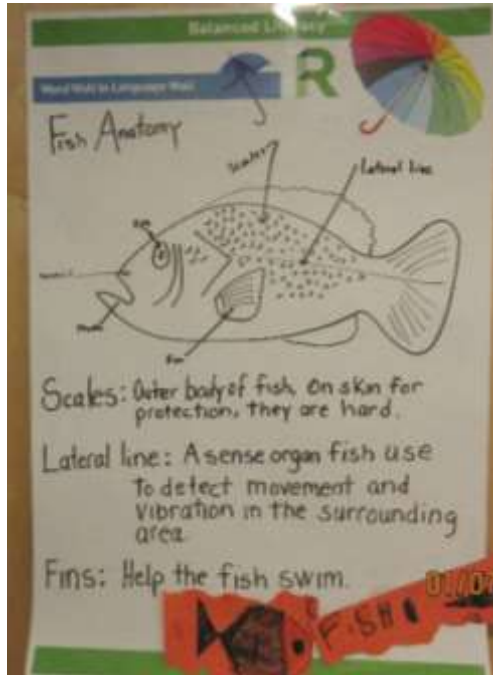 Balanced Literacy
Word Wall to Language Wall
R
Fish Anatomy
Scales
Lateral line
Eye
Mouth
Fin
Scales: Outer body of fish, on skin for
protection, they are hard.
Lateral line: A sense organ fish use
to detect movement and
vibration in the surrounding
area.
Fins: Help the fish swim.
FISH